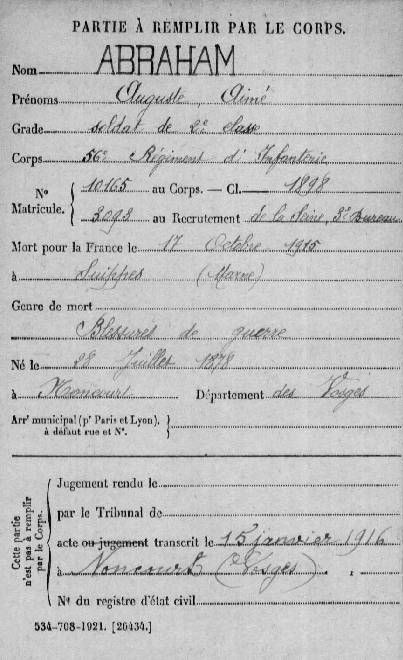 PARTIE À REMPLIR PAR LE CORPS.
Nom ABRAHAM
Prénoms Auguste, Aimé
Grade soldat de 2e classe
Corps 56e Régiment d'Infanterie
No Matricule. 10165 au Corps. — Cl. 1898
3093 au Recrutement de la Seine, 3e Bureau
Mort pour la France le 17 Octobre 1915
à Suippes (Marne)
Genre de mort
Blessures de guerre
Né le 28 Juillet 1878
à Noncourt Département des Vosges
Arrt municipal (pr Paris et Lyon), à défaut rue et No.
Cette partie n'est pas à remplir par le Corps.
Jugement rendu le
par le Tribunal de
acte ou jugement transcrit le 15 janvier 1916
à Noncourt (Vosges)
No du registre d'état civil
534-708-1921. [26434.]